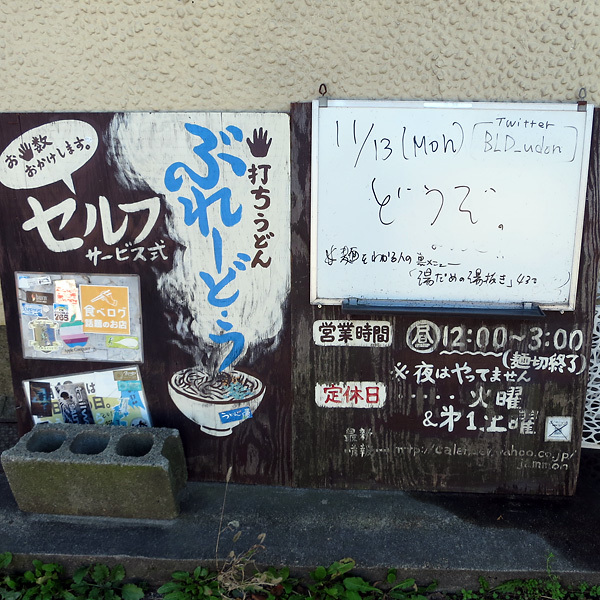 お手数
おかけします。
セルフ
サービス式
手打ちうどん
ぶれーどう
食べログ
話題のお店
うどん
11/13(Mon)
Twitter
BLD_udon
どうぞ。
麺をわかる人の裏メニュー
「湯だめの湯抜き」430
営業時間
昼12:00〜3:00
(麺切終了)
※夜はやってません
定休日
‥‥火曜
&第1土曜
最新
情報…http://calendar.yahoo.co.jp/
jammon